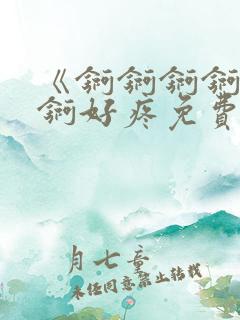 《錒錒錒錒
錒好疼免費
月七章
未经同意禁止转载